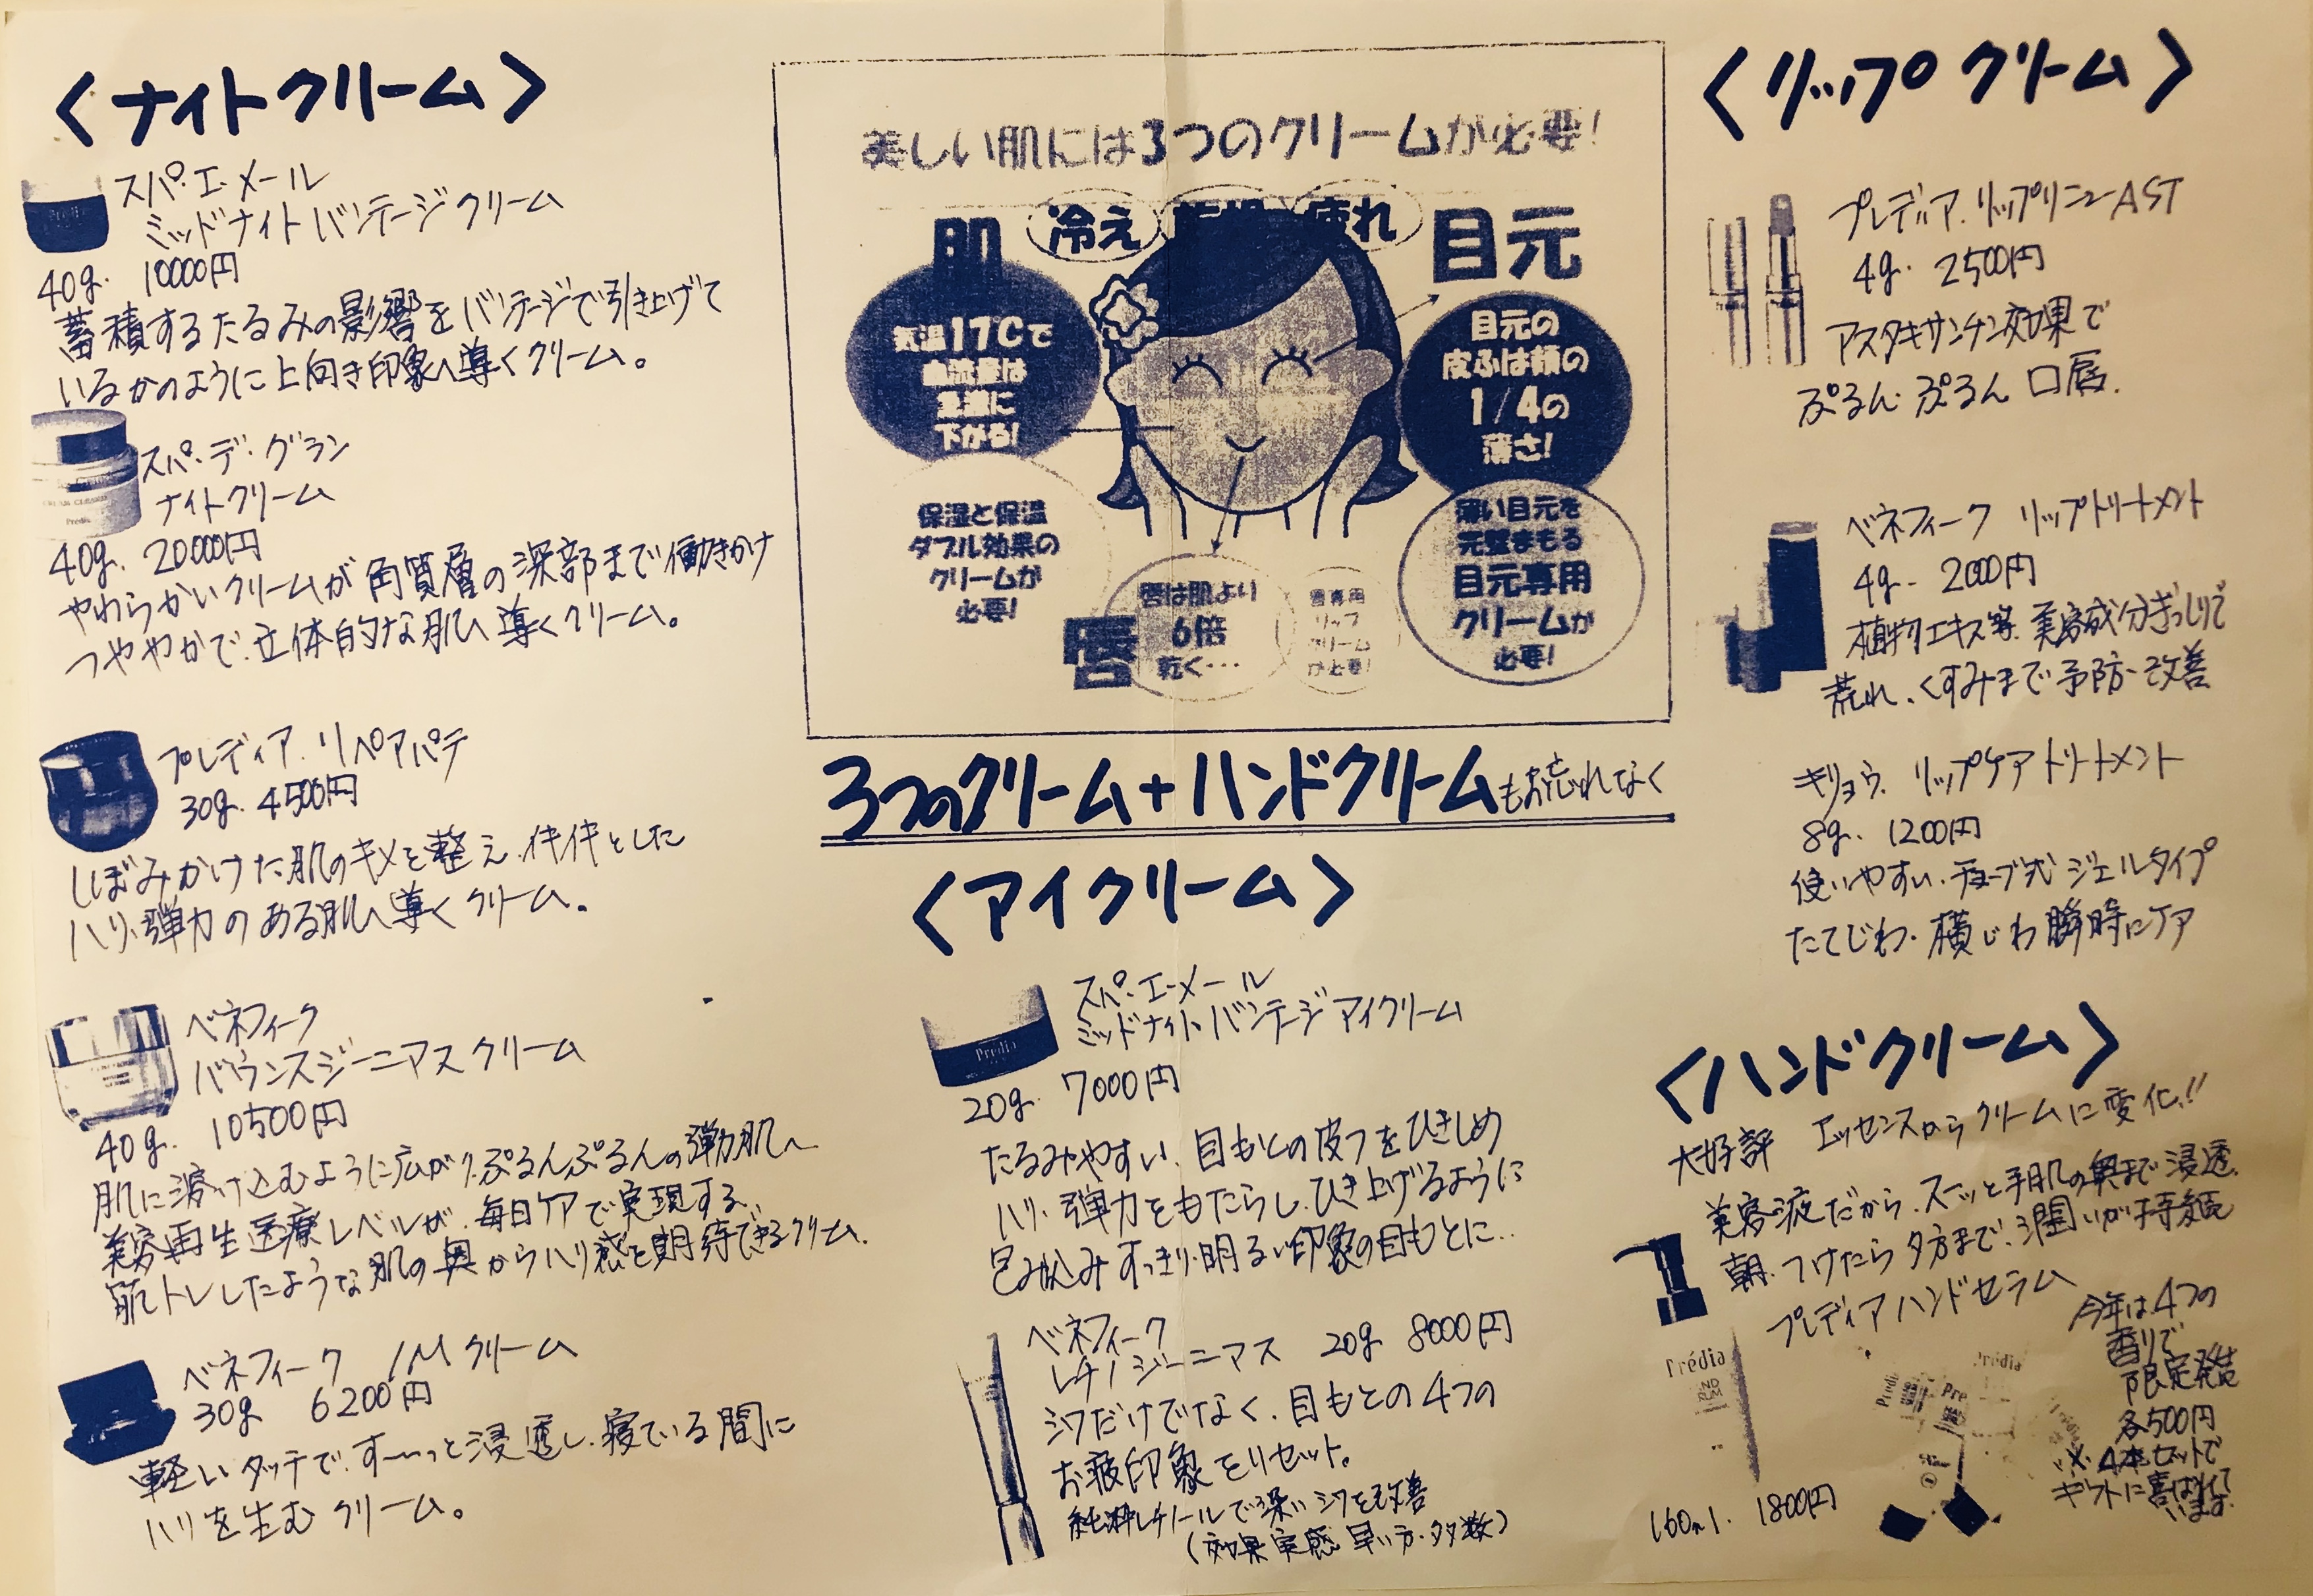 〈ナイトクリーム〉
スパ・エ・メール
ミッドナイトバンテージクリーム
40g. 10000円
蓄積するたるみの影響をバンテージで引き上げて
いるかのように上向き印象へ導くクリーム。
スパ・デ・グラン
ナイトクリーム
40g. 20000円
やわらかいクリームが角質層の深部まで働きかけ
つややかで、立体的な肌へ導くクリーム。
プレディア. リペアパテ
30g. 4500円
しぼみかけた肌のキメを整え、イキイキとした
ハリ、弾力のある肌へ導くクリーム。
ベネフィーク
バウンスジーニアスクリーム
40g. 10500円
肌に溶け込むように広がり、ぷるんぷるんの弾力肌へ
美容再生医療レベルが、毎日ケアで実現する、
筋トレしたような肌の奥からハリ感を期待できるクリーム.
ベネフィーク /Mクリーム
30g 6200円
軽いタッチで、す〜っと浸透し、寝ている間に
ハリを生むクリーム。
美しい肌には3つのクリームが必要!
肌
冷え
乾燥
疲れ
目元
気温17℃で
血流量は
急激に
下がる!
目元の
皮ふは顔の
1/4の
薄さ!
保湿と保温
ダブル効果の
クリームが
必要!
薄い目元を
完璧まもる
目元専用
クリームが
必要!
唇
唇は肌より
6倍
乾く…
唇専用
リップ
クリーム
が必要!
3つのクリーム+ハンドクリームもお忘れなく
〈アイクリーム〉
スパ・エ・メール
ミッドナイト・バンテージアイクリーム
Prédia
20g. 7000円
たるみやすい、目もとの皮フをひきしめ
ハリ、弾力をもたらし、ひき上げるように
包み込みすっきり明るい印象の目もとに..
ベネフィーク
レチノジーニアス 20g 8000円
シワだけでなく、目もとの4つの
お疲印象をリセット。
純粋レチノールで深いシワを改善
(効果実感早い方・多数)
〈リップクリーム〉
プレディア. リップリニューAST
4g. 2500円
アスタキサンチン効果で
ぷるん・ぷるん口唇.
ベネフィーク リップトリートメント
4g. 2000円
植物エキス等、美容成分ぎっしりで
荒れ、くすみまで予防・改善
キリョウ. リップケアトリートメント
8g. 1200円
使いやすい、チューブ式ジェルタイプ
たてじわ・横じわ瞬時にケア
〈ハンドクリーム〉
大好評 エッセンスからクリームに変化!!
美容液だから、スーッと手肌の奥まで浸透.
朝、つけたら夕方まで、潤いが持続
プレディアハンドセラム
Prédia
今年は4つの
香りで
限定発売
各500円
※4本セットで
ギフトに喜ばれて
います.
160ml. 1800円